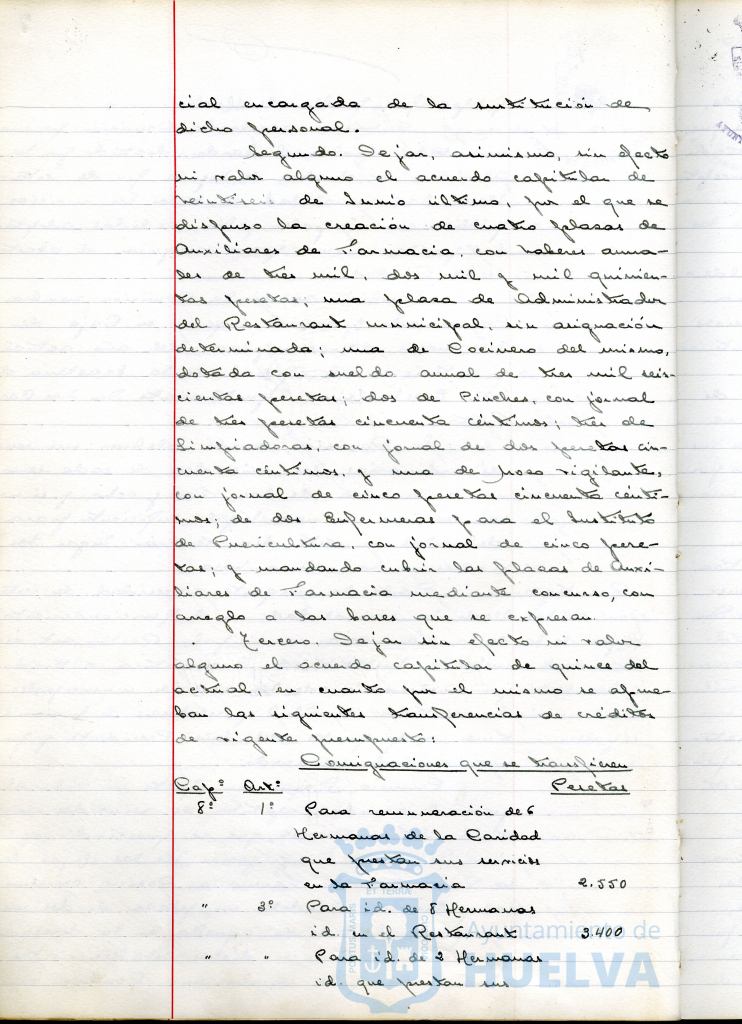 cial encargada de la sustitución de
dicho personal.
Segundo. Dejar, asimismo, sin efecto
ni valor alguno el acuerdo capitular de
veintiseis de Junio último, por el que se
dispuso la creación de cuatro plazas de
Auxiliares de Farmacia, con haberes anua-
les de tres mil, dos mil y mil quinien-
tas pesetas; una plaza de Administrador
del Restaurant municipal, sin asignación
determinada; una de Cocinero del mismo,
dotada con sueldo anual de tres mil seis-
cientas pesetas; dos de Pinches, con jornal
de tres pesetas cincuenta céntimos; tres de
Limpiadoras, con jornal de dos pesetas cin-
cuenta céntimos, y una de Mozo vigilante,
con jornal de cinco pesetas cincuenta cénti-
mos; de dos Enfermeras para el Instituto
de Puericultura, con jornal de cinco pese-
tas; y mandando cubrir las plazas de Auxi-
liares de Farmacia mediante concurso, con
arreglo a las bases que se expresan.
Tercero. Dejar sin efecto ni valor
alguno el acuerdo capitular de quince del
actual, en cuanto por el mismo se aprue-
ban las siguientes transferencias de créditos
de vigente presupuesto:
Consignaciones que se transfieren
Cap.º Art.º Pesetas
8º 1º Para remuneración de 6
Hermanas de la Caridad
que prestan sus servicios
en la Farmacia 2.550
" 3º Para id. de 8 Hermanas
id. en el Restaurant 3.400
" " Para id. de 2 Hermanas
id. que prestan sus
Ayuntamiento de
HUELVA